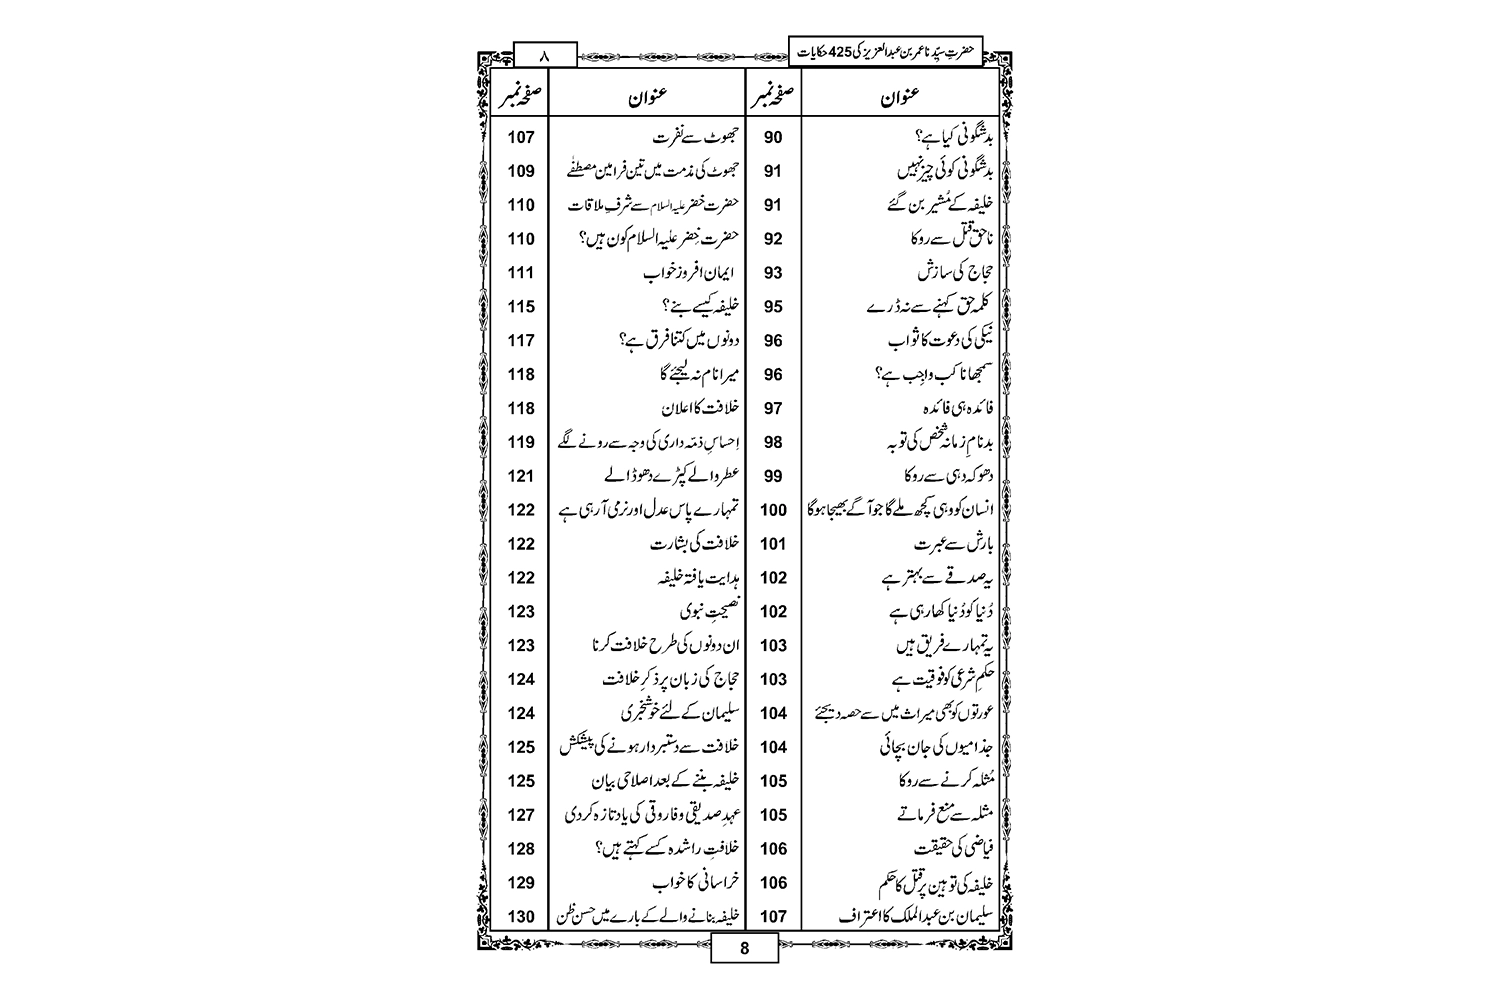 حضرتِ سیِّدنا عمر بن عبدالعزیز کی 425 حکایات
۸
عنوان صفحہ نمبر عنوان صفحہ نمبر
بدشگونی کیا ہے؟ 90 جھوٹ سے نفرت 107
بدشگونی کوئی چیز نہیں 91 جھوٹ کی مذمت میں تین فرامین مصطفٰے 109
خلیفہ کے مُشیر بن گئے 91 حضرت خضر علیہ السلام سے شرفِ ملاقات 110
ناحق قتل سے روکا 92 حضرت خِضر علیہ السلام کون ہیں؟ 110
حجاج کی سازش 93 ایمان افروز خواب 111
کلمہ حق کہنے سے نہ ڈرے 95 خلیفہ کیسے بنے؟ 115
نیکی کی دعوت کا ثواب 96 دونوں میں کتنا فرق ہے؟ 117
سمجھانا کب واجِب ہے؟ 96 میرا نام نہ لیجئے گا 118
فائدہ ہی فائدہ 97 خلافت کا اعلان 118
بدنامِ زمانہ شخص کی توبہ 98 اِحساسِ ذمّہ داری کی وجہ سے رونے لگے 119
دھوکہ دہی سے روکا 99 عطر والے کپڑے دھو ڈالے 121
انسان کو وہی کچھ ملے گا جو آگے بھیجا ہوگا 100 تمہارے پاس عدل اور نرمی آرہی ہے 122
بارش سے عبرت 101 خلافت کی بشارت 122
یہ صدقے سے بہتر ہے 102 ہدایت یافتہ خلیفہ 122
دُنیا کو دُنیا کھا رہی ہے 102 نصیحتِ نبوی 123
یہ تمہارے فریق ہیں 103 ان دونوں کی طرح خلافت کرنا 123
حکمِ شرعی کو فوقیت ہے 103 حجاج کی زبان پر ذکرِ خلافت 124
عورتوں کو بھی میراث میں سے حصہ دیجئے 104 سلیمان کے لئے خوشخبری 124
جذامیوں کی جان بچائی 104 خلافت سے دستبردار ہونے کی پیشکش 125
مُثلہ کرنے سے روکا 105 خلیفہ بننے کے بعد اصلاحی بیان 125
مثلہ سے منع فرماتے 105 عہدِ صدیقی و فاروقی کی یاد تازہ کردی 127
فیاضی کی حقیقت 106 خلافتِ راشدہ کسے کہتے ہیں؟ 128
خلیفہ کی توہین پر قتل کا حکم 106 خراسانی کا خواب 129
سلیمان بن عبدالملک کا اعتراف 107 خلیفہ بنانے والے کے بارے میں حسن ظن 130
8